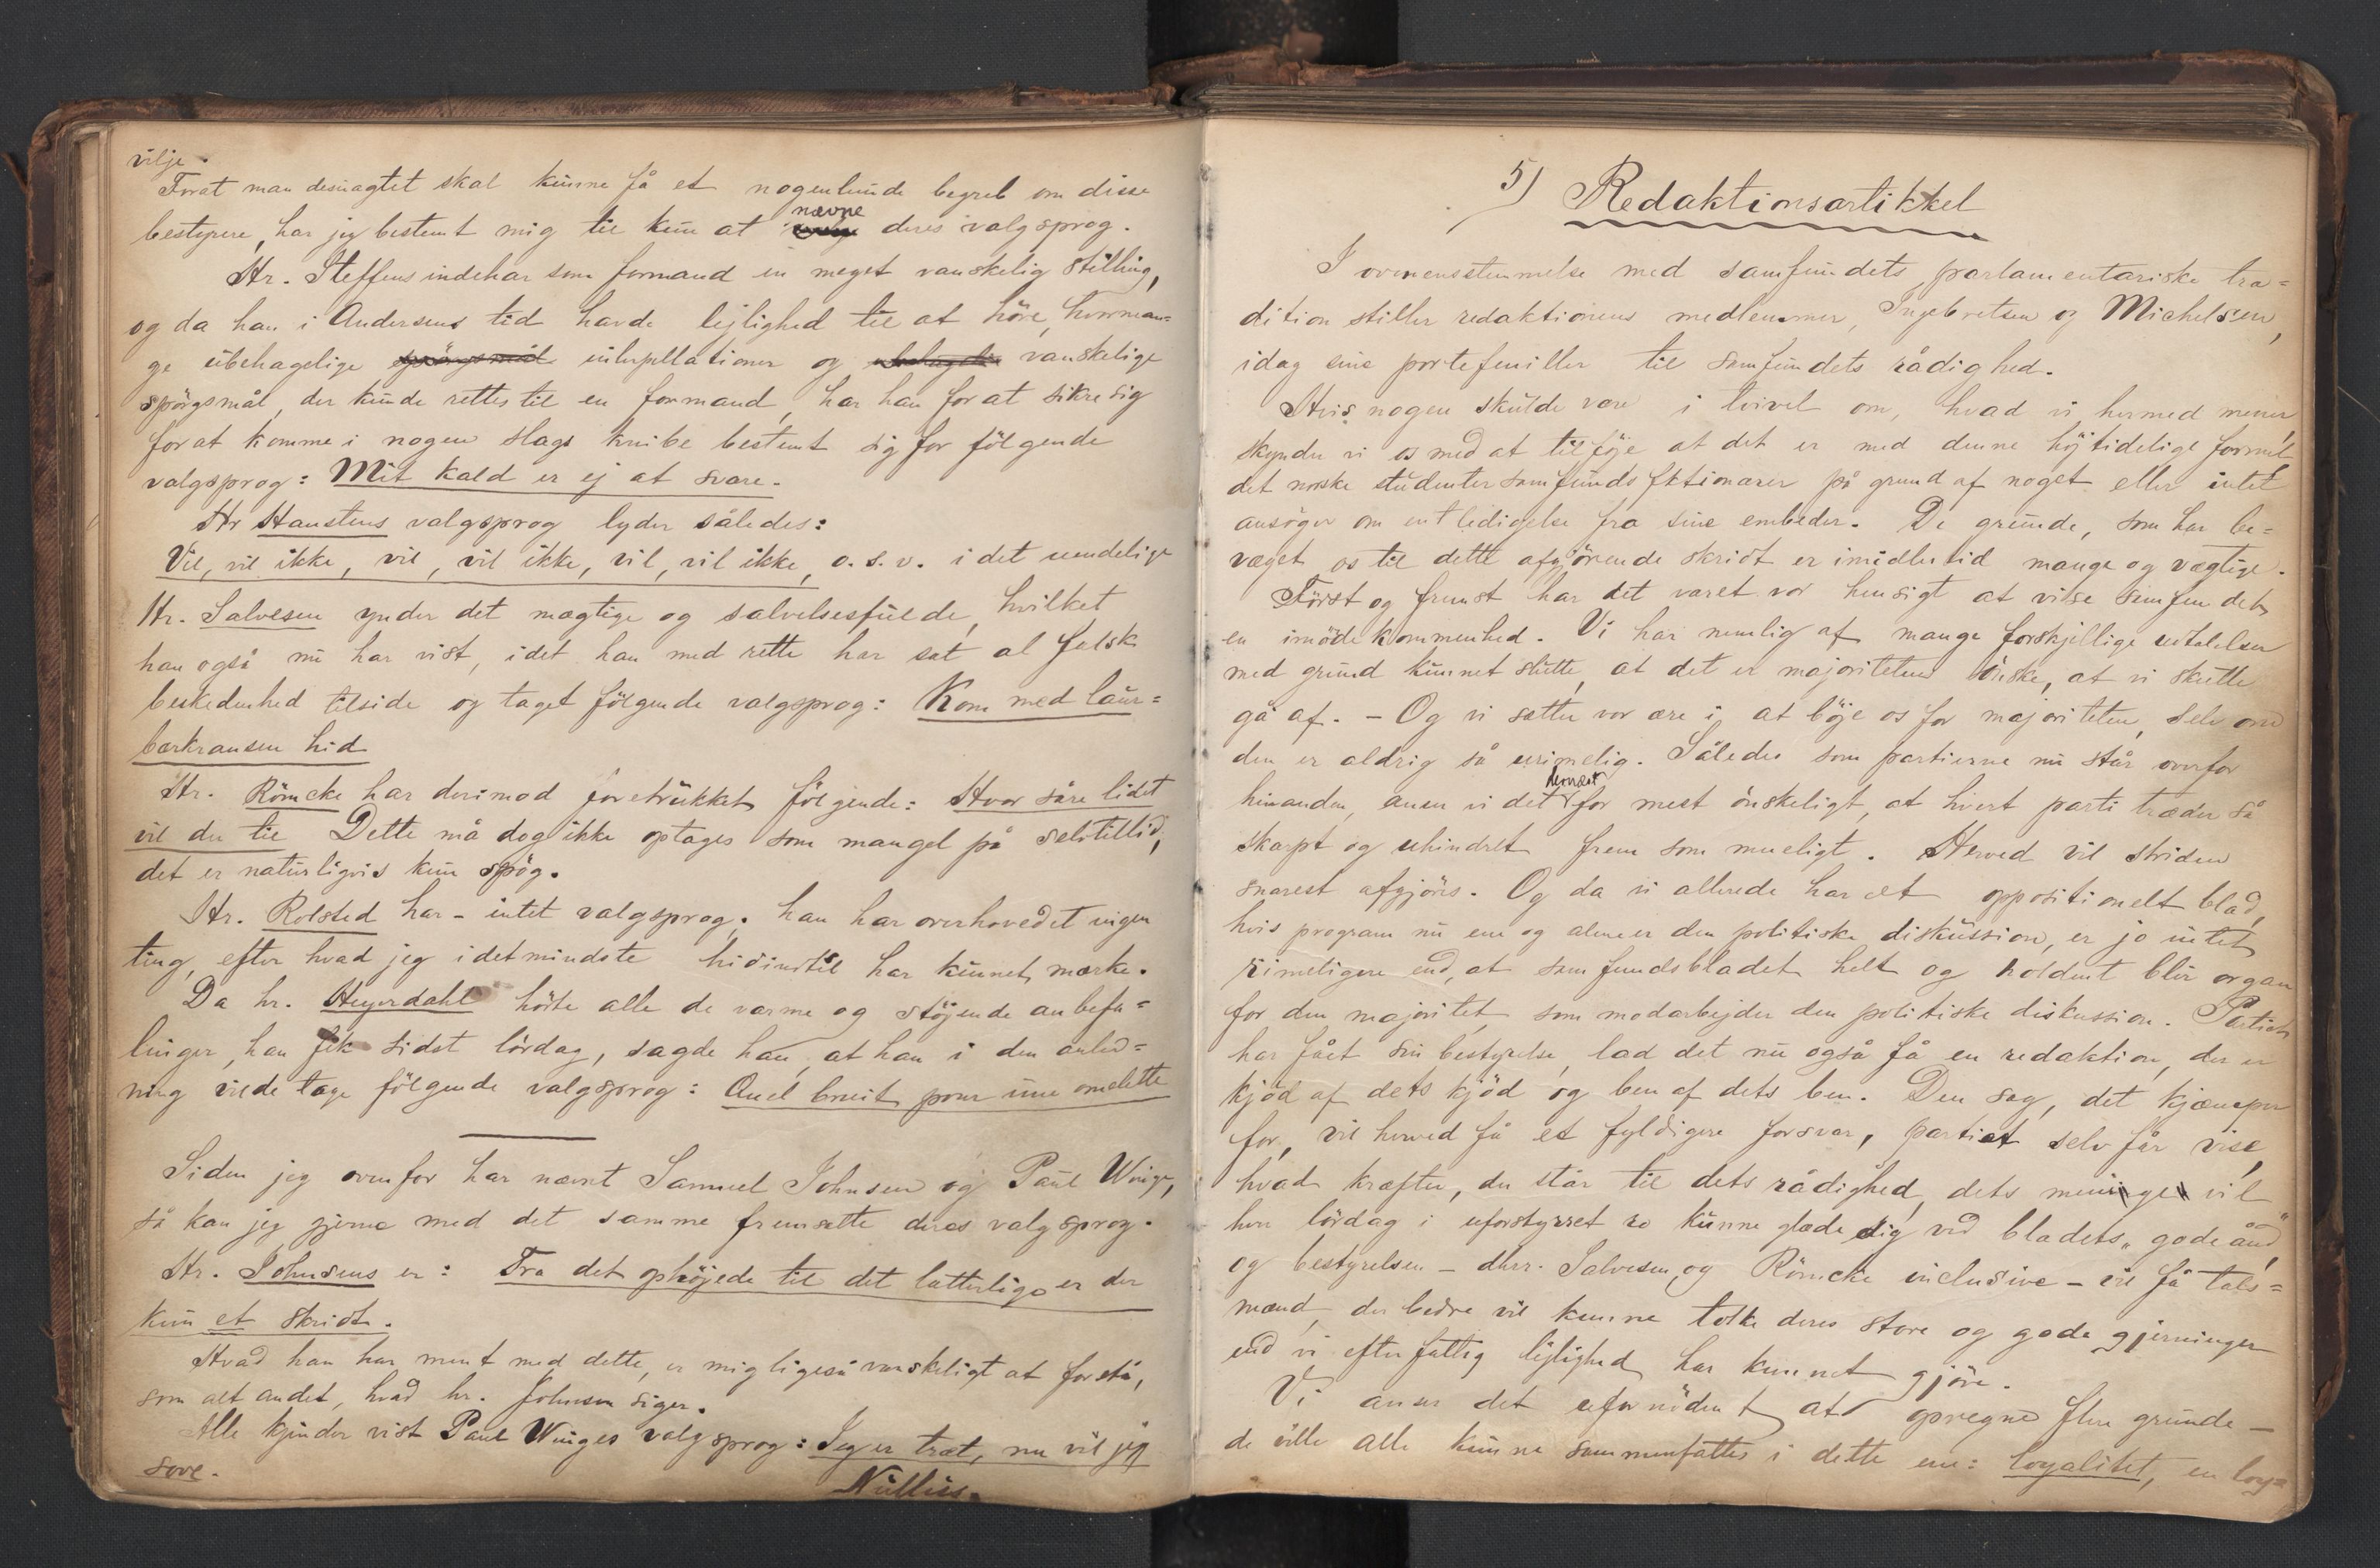 vilje.
Forat man desuagtet skal kunne få et nogenlunde begreb om disse
bestyrere, har jeg bestemt mig til kun at nævne deres valgsprog.
Hr. Steffens indehar som formand en meget vanskelig stilling,
og da han i Andersens tid havde lejlighed til at höre, hvorman-
ge übehagelige spörgsmål interpellationer og ubehagelige vanskelige
spörgsmål, der kunde rettes til en formand, har han for at sikre sig
for at komme i nogen slags knibe bestemt sig for fölgende
valgsprog: Mit kald er ej at svare.
Hr Hanstens valgsprog lyder således:
Vil, vil ikke, vil, vil ikke, vil, vil ikke, o. s. v. i det uendelige
Hr. Salvesen ynder det mægtige og salvelsesfulde, hvilket
han også nu har vist, idet han med rette har sat al falsk
beskedenhed tilside og taget fölgende valgsprog: Kom med laur=
bærkransen hid
Hr. Römcke har derimod foretrukket fölgende: Hvor såre lidet
vil du til Dette må dog ikke optages som mangel på selvtillid;
det er naturligvis kun spög.
Hr. Rolsted har - intet valgsprog; han har overhovedet ingen
ting, efter hvad jeg i det mindste hidindtil har kunnet mærke.
Da hr. Heyerdahl hörte alle de varme og stöjende anbefa=
linger, han fik sidst lördag, sagde han, at han i den anled=
ning vilde tage fölgende valgsprog: Quel bruit pour une omelette
Siden jeg ovenfor har nævnt Samuel Johnsen og Paul Winge,
så kan jeg gjerne med det samme fremsætte deres valgsprog.
Hr. Johnsens er: Fra det ophöjede til det latterlige er der
kun et skridt.
Hvad han har ment med dette, er mig ligeså vanskeligt at forstå,
som alt andet, hvad hr. Johnsen siger.
Alle kjender vist Paul Winges valgsprog: Jeg er træt, nu vil jeg
sove.
Nullus.
5) Redaktionsartikkel
I overensstemmelse med samfundets parlamentariske tra=
dition stiller redaktionens medlemmer, Ingebretsen og Michelsen,
idag sine portefeuiller til samfundets rådighed.
Hvis nogen skulde være i tvivl om, hvad vi hermed mener,
skynder vi os med at tilföje at det er med denne höjtidelige formel
det norske studentersamfunds fktionærer på grund af noget eller intet
ansöger om entledigelse fra sine embeder. De grunde, som har be=
væget os til dette afgjörende skridt er imidlertid mange og vægtige.
Först og fremst har det været vor hensigt at vise samfundet
en imödekommenhed. Vi har nemlig af mange forskjellige udtalelser
med grund kunnet slutte, at det er majoritetens önske, at vi skulle
gå af. - Og vi sætter vor ære i at böje os for majoriteten, selv om
den er aldrig så urimelig. Således som partierne nu står overfor
hinanden, anser vi det dernæst for mest önskeligt, at hvert parti træder så
skarpt og uhindret frem som mueligt. Herved vil striden
snarest afgjöres. Og da vi allerede har et oppositionelt blad,
hvis program nu ene og alene er den politiske diskussion, er jo intet
rimeligere end, at samfundsbladet helt og holdent blir organ
for den majoritet, som modarbejder den politiske diskussion. Partiet
har fået sin bestyrelse, lad det nu også få en redaktion, der er
kjöd af dets kjöd og ben af dets ben. Den sag, det kjæmper
for, vil herved få et fyldigere forsvar, partiet selv får vise,
hvad kræfter, der står til dets rådighed, dets menige vil
hver lördag i uforstyrret ro kunne glæde sig ved bladets „gode ånd",
og bestyrelsen - dhrr. Salvesen og Römcke inclusive - vil få tals=
mænd, der bedre vil kunne tolke deres store og gode gjerninger
end vi efter fattig lejlighed har kunnet gjöre.
Vi anser det ufornödent at opregne flere grunde -
de ville alle kunne sammenfattes i dette ene: loyalitet, en loy=